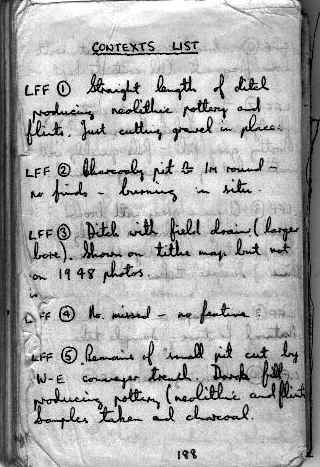 CONTEXTS LIST
LFF ① Straight length of ditch
producing neolithic pottery and
flints. Just cutting gravel in place.
LFF ② Charcoaly pit 1m round -
no finds - burning in situ.
LFF ③ Ditch with field drain (larger
bore). Shown on tithe map but not
on 1948 photos.
LFF ④ No. missed - no feature.
LFF ⑤ Remains of small pit cut by
W-E conveyer trench. Dark fill
producing pottery (neolithic and flint
Samples taken and charcoal.
188